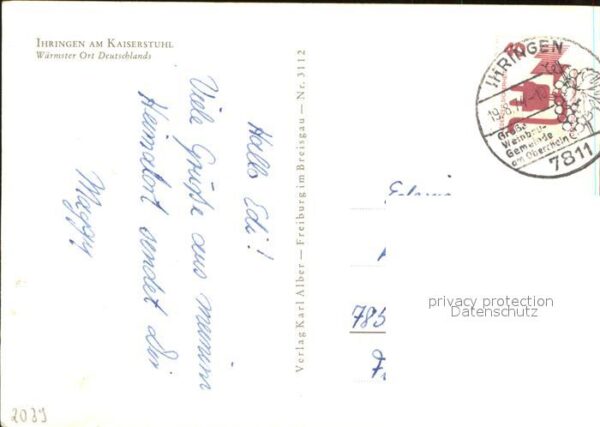 IHRINGEN AM KAISERSTUHL
Wärmster Ort Deutschlands
Hallo Edi!
Viele Grüße aus meinem
Heimatort sendet Dir
Maggy
Verlag Karl Alber — Freiburg im Breisgau — Nr. 3112
IHRINGEN
Große
Weinbau-
Gemeinde
am Oberrhein
7811
785
privacy protection
Datenschutz
2039